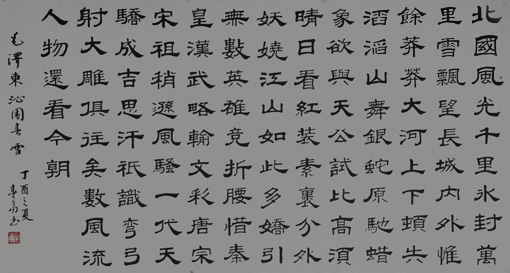 北國風光千里氷封萬
里雪飄望長城内外惟
餘莽莽大河上下頓失
滔滔山舞銀蛇原馳蜡
象欲與天公試比高須
晴日看紅裝素裹分外
妖嬈江山如此多嬌引
無數英雄競折腰惜秦
皇漢武略輸文彩唐宗
宋祖稍遜風騷一代天
驕成吉思汗祇識彎弓
射大雕俱往矣數風流
人物還看今朝
毛澤東沁園春雪
丁酉之夏